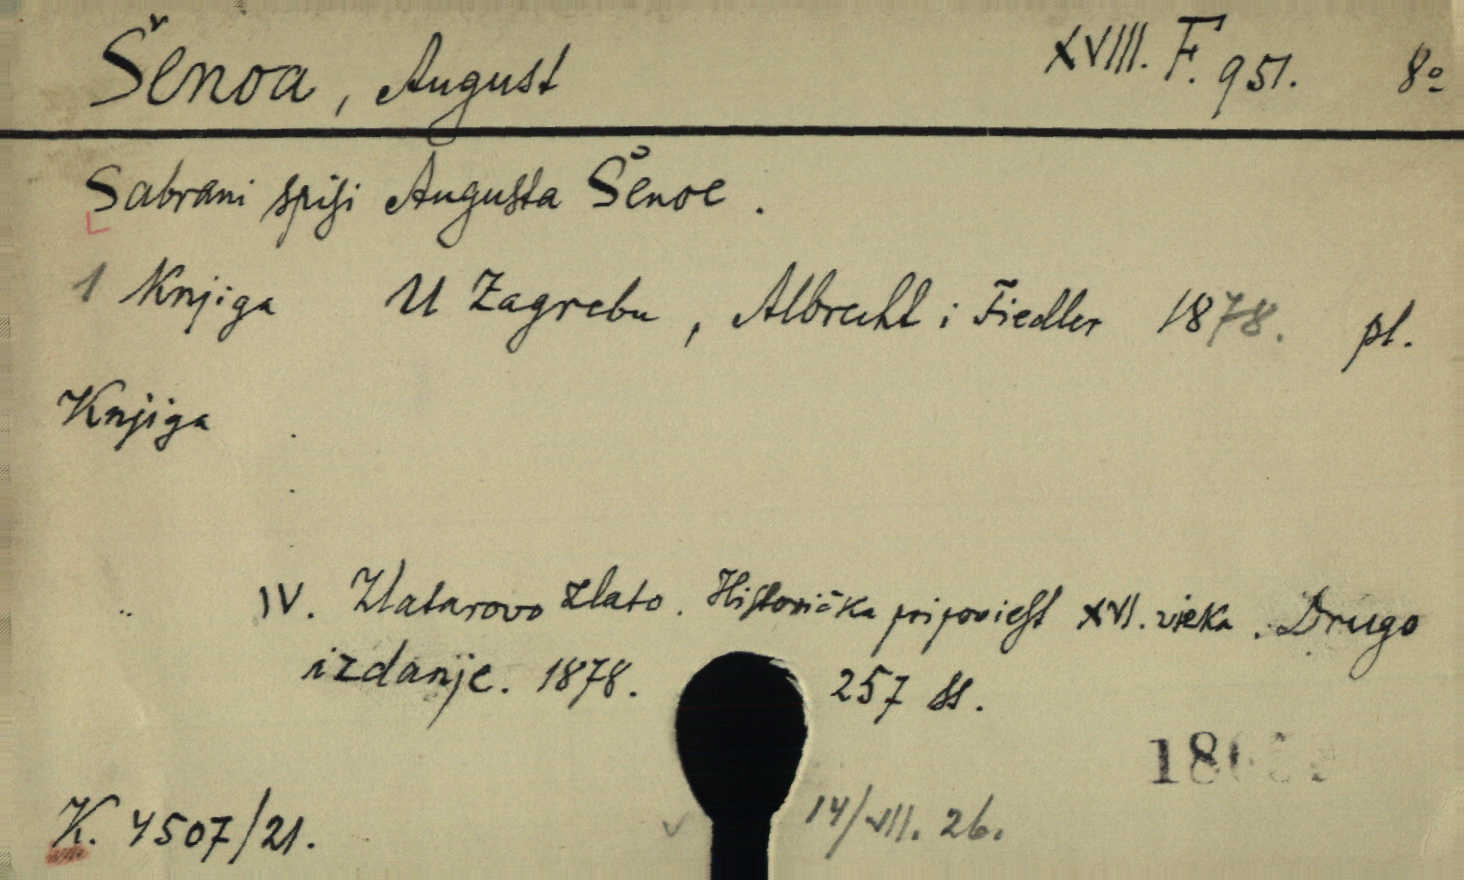 Šenoa, August XVIII. F. 951. 8º
Sabrani spisi Augusta Šenoe.
1 Knjiga U Zagrebu, Albrecht i Fiedler 1878. pl.
Knjiga
IV. Zlatarovo zlato. Historička pripoviest XVI. vieka. Drugo
izdanje. 1878. 257 ss.
K. 4507/21. 14/VII. 26.